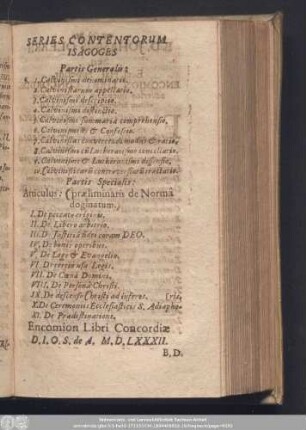 SERIES CONTENTORUM
ISAGOGES
Partis Generalis:
§. 1. Calvinismi denominatio.
2. Calvinistarum appellatio.
3. Calvinismi descriptio.
4. Calvinismi distinctio.
5. Calvinismi summaria comprehensio.
6. Calvinismus & Confessio.
7. Calvinismi
8. Calvinismi cū Lutheranismo conciliatio.
9. Calvinismi & Lutheranismi dissensio.
10.
Partis Specialis:
Articulus: (præliminaris de Normâ
dogmatum.)
I. De peccato originis.
II. De Libero arbitrio.
III. D. Justitiâ fidei coram DEO.
IV. De bonis operibus.
V. De Lege & Evangelio.
VI. De tertio usu Legis.
VII. De Cœnâ Domini.
VIII. De Personâ Christi.
IX. De descensu Christi ad inferos.
X. De Ceremoniis Ecclesiasticis S. Adiapho-
XI. De Prædestinatione.
Encomion Libri Concordiæ
D. I. O. S. de A. M. D. LXXXII.
B. D.